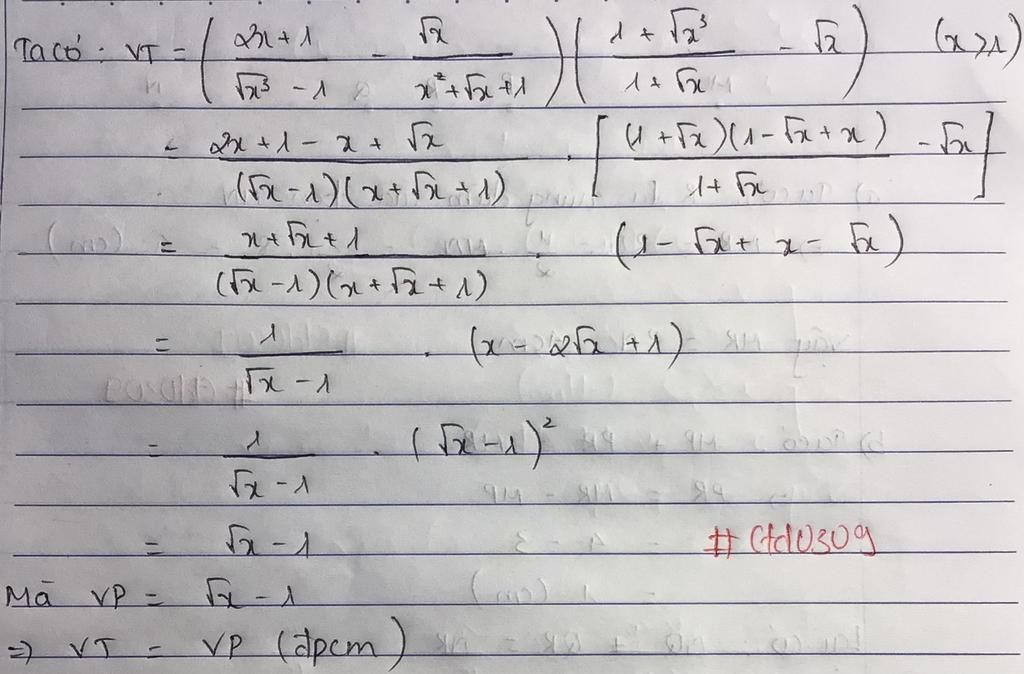 Ta có: VT = ( (2x + 1)/(√x³ - 1) - √x/(x² + √x + 1) ) ( (1 + √x³)/(1 + √x) - √x ) (x > 1)
= (2x + 1 - x + √x)/((√x - 1)(x + √x + 1)) . [ (1 + √x)(1 - √x + x)/(1 + √x) - √x ]
= (x + √x + 1)/((√x - 1)(x + √x + 1)) . (1 - √x + x - √x)
= 1/(√x - 1) . (x - 2√x + 1)
= 1/(√x - 1) . (√x - 1)²
= √x - 1 # Ctd0309
Mà VP = √x - 1
=> VT = VP (đpcm)